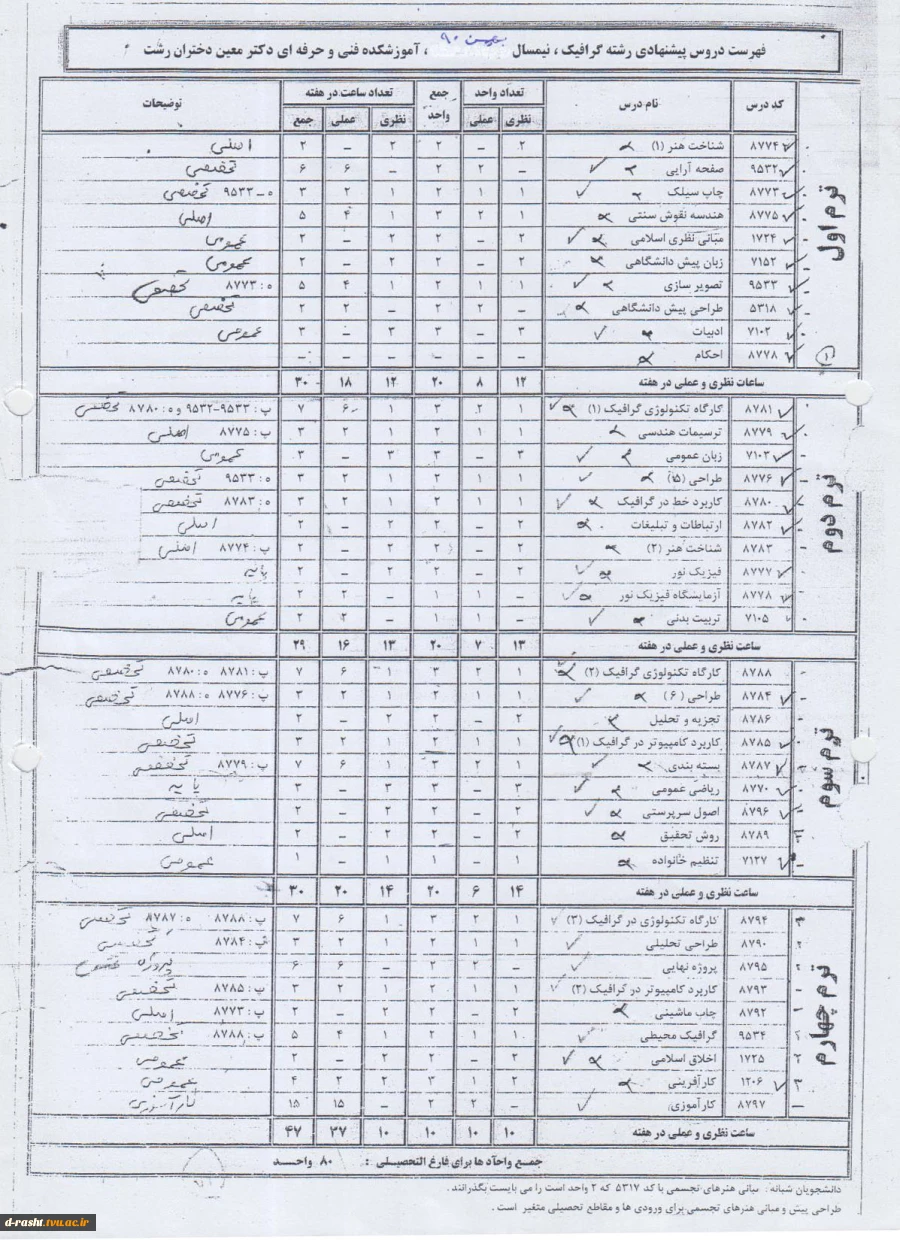 فهرست دروس پیشنهادی رشته گرافیک ، نیمسال بهمن ۹۰ ، آموزشکده فنی و حرفه ای دکتر معین دختران رشت
کد درس نام درس تعداد واحد جمع واحد تعداد ساعت در هفته توضیحات
نظری عملی نظری عملی جمع
ترم اول
۸۷۷۴ شناخت هنر (۱) ۲ – ۲ ۲ – ۲ اصلی
۹۵۳۲ صفحه آرایی – ۲ ۲ – ۶ ۶ تخصصی
۸۷۷۳ چاپ سیلک ۱ ۱ ۲ ۱ ۲ ۳ ه-۹۵۳۳ تخصصی
۸۷۷۵ هندسه نقوش سنتی ۱ ۲ ۳ ۱ ۴ ۵ اصلی
۱۷۲۴ مبانی نظری اسلامی ۲ – ۲ ۲ – ۲ عمومی
۷۱۵۲ زبان پیش دانشگاهی ۲ – ۲ ۲ – ۲ عمومی
۹۵۳۳ تصویر سازی ۱ ۱ ۲ ۱ ۴ ۵ ه: ۸۷۷۳ تخصصی
۵۳۱۸ طراحی پیش دانشگاهی – ۲ ۲ – ۲ ۲ تخصصی
۷۱۰۲ ادبیات ۳ – ۳ ۳ – ۳ عمومی
۸۷۷۸ احکام – – – – – –
ساعات نظری و عملی در هفته ۱۲ ۸ ۲۰ ۱۲ ۱۸ ۳۰
ترم دوم
۸۷۸۱ کارگاه تکنولوژی گرافیک (۱) ۱ ۲ ۳ ۱ ۶ ۷ پ: ۹۵۳۳-۹۵۳۲ و ه: ۸۷۸۰ تخصصی
۸۷۷۹ ترسیمات هندسی ۱ ۱ ۲ ۱ ۲ ۳ پ: ۸۷۷۵ اصلی
۷۱۰۳ زبان عمومی ۳ – ۳ ۳ – ۳ عمومی
۸۷۷۶ طراحی (۵) ۱ ۱ ۲ ۱ ۲ ۳ ه: ۹۵۳۳ تخصصی
۸۷۸۰ کاربرد خط در گرافیک ۱ ۱ ۲ ۱ ۲ ۳ ه: ۸۷۸۳ تخصصی
۸۷۸۲ ارتباطات و تبلیغات ۲ – ۲ ۲ – ۲ اصلی
۸۷۸۳ شناخت هنر (۲) ۲ – ۲ ۲ – ۲ پ: ۸۷۷۴ اصلی
۸۷۷۷ فیزیک نور ۲ – ۲ ۲ – ۲ پایه
۸۷۷۸ آزمایشگاه فیزیک نور – ۱ ۱ – ۲ ۲ پایه
۷۱۰۵ تربیت بدنی – ۱ ۱ – ۲ ۲ عمومی
ساعت نظری و عملی در هفته ۱۳ ۷ ۲۰ ۱۳ ۱۶ ۲۹
ترم سوم
۸۷۸۸ کارگاه تکنولوژی گرافیک (۲) ۱ ۲ ۳ ۱ ۶ ۷ پ: ۸۷۸۱ ه: ۸۷۸۰ تخصصی
۸۷۸۴ طراحی (۶) ۱ ۱ ۲ ۱ ۲ ۳ پ: ۸۷۷۶ ه: ۸۷۸۸ تخصصی
۸۷۸۶ تجزیه و تحلیل ۲ – ۲ ۲ – ۲ اصلی
۸۷۸۵ کاربرد کامپیوتر در گرافیک (۱) ۱ ۱ ۲ ۱ ۲ ۳ تخصصی
۸۷۸۷ بسته بندی ۱ ۲ ۳ ۱ ۶ ۷ پ: ۸۷۷۹ تخصصی
۸۷۷۰ ریاضی عمومی ۳ – ۳ ۳ – ۳ پایه
۸۷۹۶ اصول سرپرستی ۲ – ۲ ۲ – ۲ تخصصی
۸۷۸۹ روش تحقیق ۲ – ۲ ۲ – ۲ اصلی
۷۱۲۷ تنظیم خانواده ۱ – ۱ ۱ – ۱ عمومی
ساعت نظری و عملی در هفته ۱۴ ۶ ۲۰ ۱۴ ۲۰ ۳۰
ترم چهارم
۸۷۹۴ کارگاه تکنولوژی در گرافیک (۳) ۱ ۲ ۳ ۱ ۶ ۷ پ: ۸۷۸۸ ه: ۸۷۸۷ تخصصی
۸۷۹۰ طراحی تحلیلی ۱ ۱ ۲ ۱ ۲ ۳ پ: ۸۷۸۴ تخصصی
۸۷۹۵ پروژه نهایی – ۲ ۲ – ۶ ۶ پروژه
۸۷۹۳ کاربرد کامپیوتر در گرافیک (۲) ۱ ۱ ۲ ۱ ۲ ۳ پ: ۸۷۸۵ تخصصی
۸۷۹۲ چاپ ماشینی ۲ – ۲ ۲ – ۲ پ: ۸۷۷۳ اصلی
۹۵۳۴ گرافیک محیطی ۱ ۱ ۲ ۱ ۴ ۵ پ: ۸۷۸۸ تخصصی
۱۷۲۵ اخلاق اسلامی ۲ – ۲ ۲ – ۲ عمومی
۱۲۰۶ کارآفرینی ۲ ۱ ۳ ۲ ۲ ۴ عمومی
۸۷۹۷ کارآموزی – ۲ ۲ – ۱۵ ۱۵ کارآموزی
ساعت نظری و عملی در هفته ۱۰ ۱۰ ۱۰ ۱۰ ۳۷ ۴۷
جمع واحد ها برای فارغ التحصیلی : ۸۰ واحد
دانشجویان شبانه : مبانی هنرهای تجسمی با کد ۵۳۱۷ که ۲ واحد است را می بایست بگذرانند .
طراحی پیش و مبانی هنرهای تجسمی برای ورودی ها و مقاطع تحصیلی متغیر است .
d-rasht.tvu.ac.ir